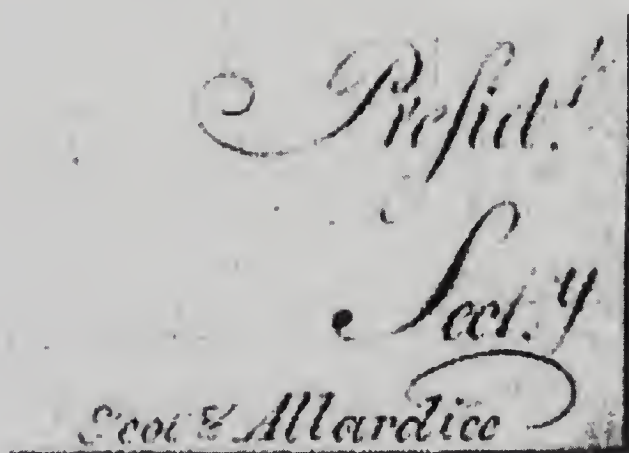 Presid.t
Sect.y
Scot & Allardice